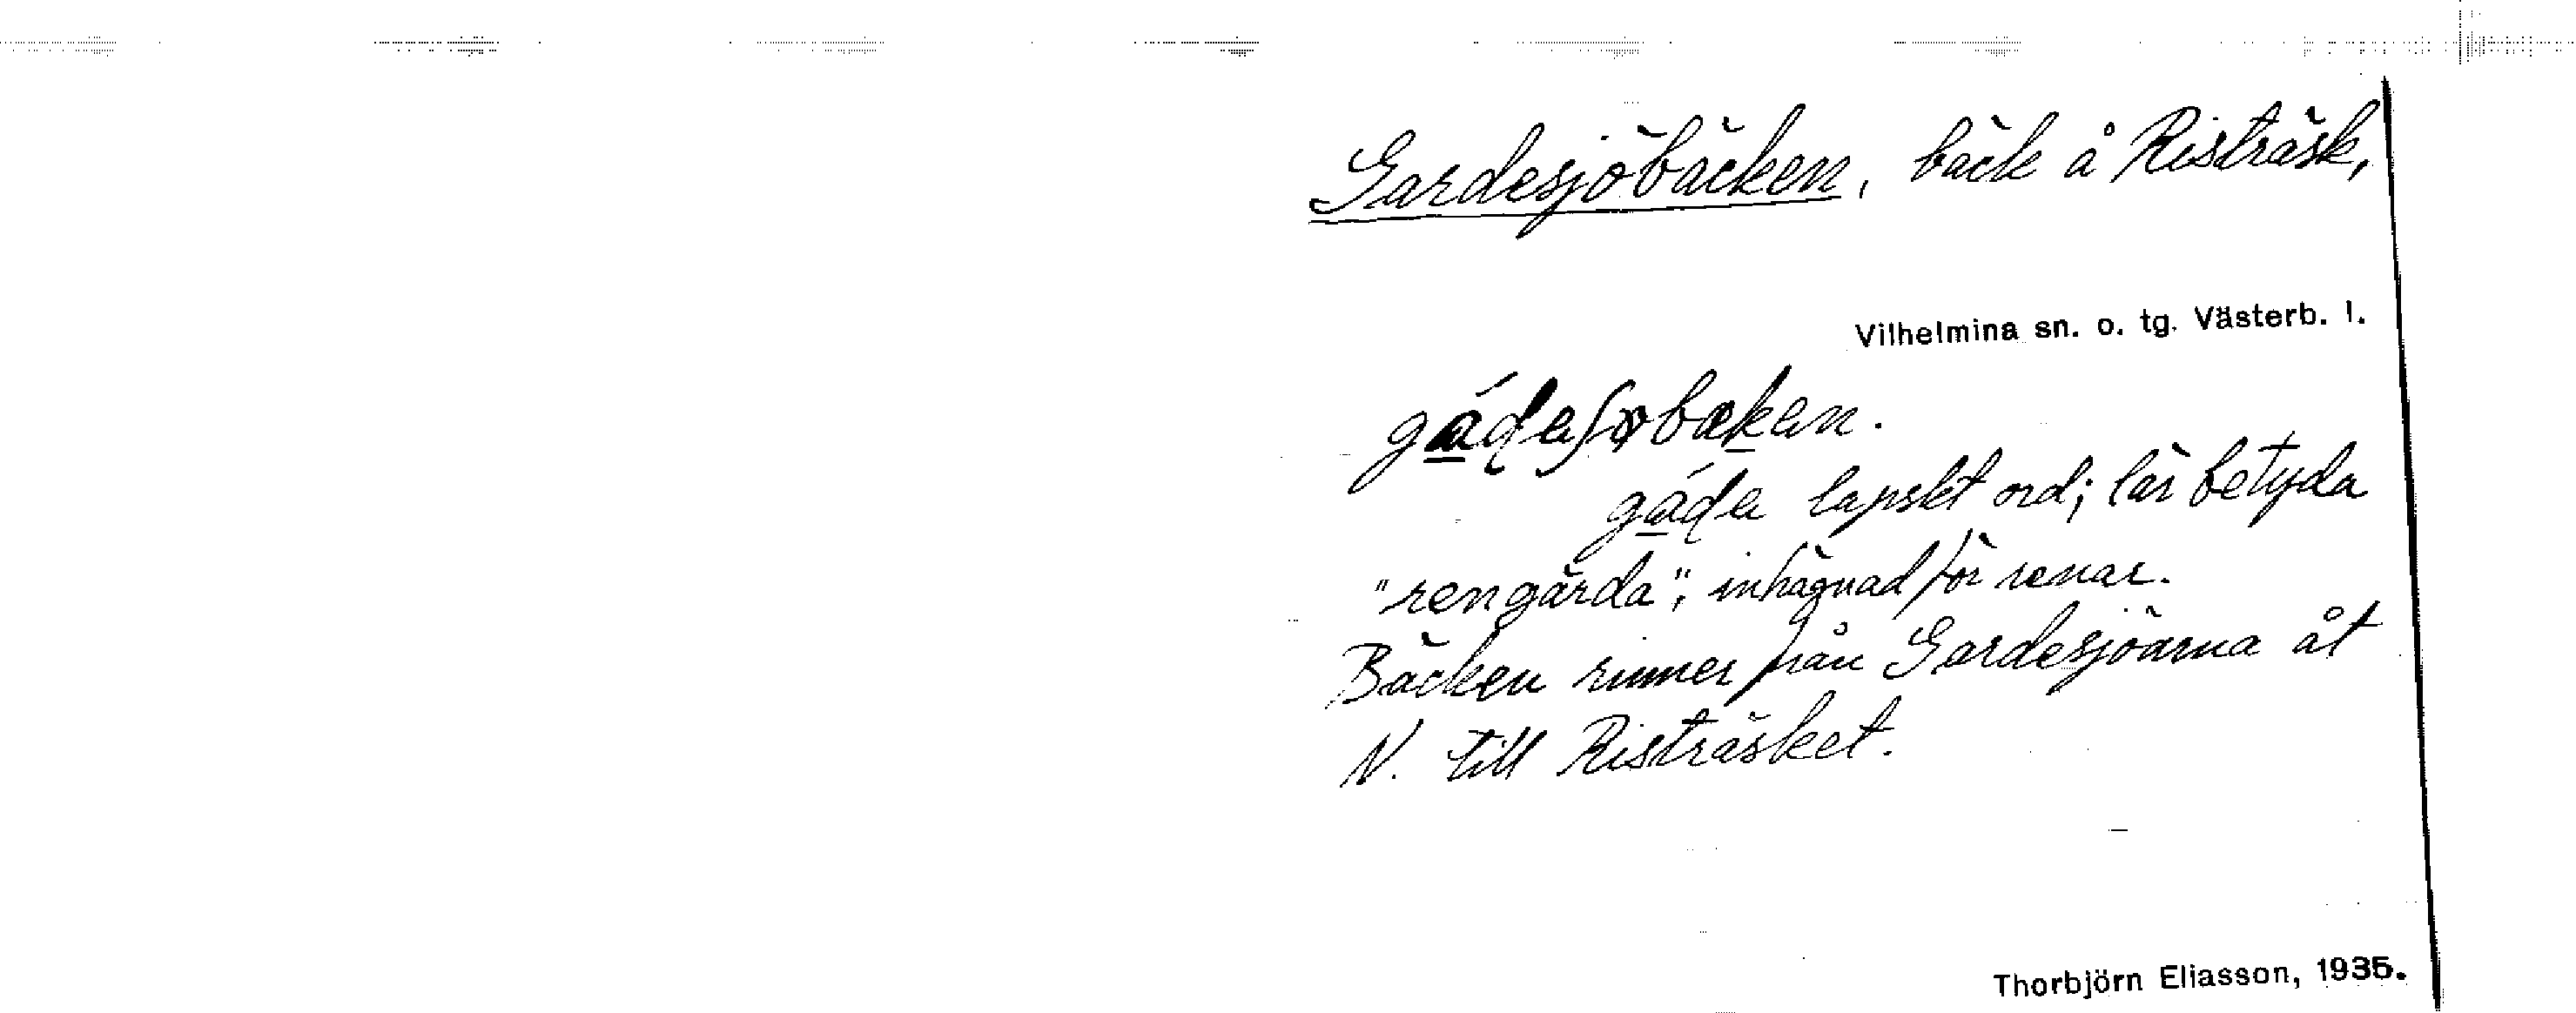 Gardesjöbäcken, bäck å Risträsk,
Vilhelmina sn. o. tg. Västerb. l.
gáɖeʃøbæken.
gáɖe lapskt ord; lär betyda
"rengärda"; inhägnad för renar.
Bäcken rinner från Gardesjöarna åt
N. till Risträsket.
Thorbjörn Eliasson, 1935.